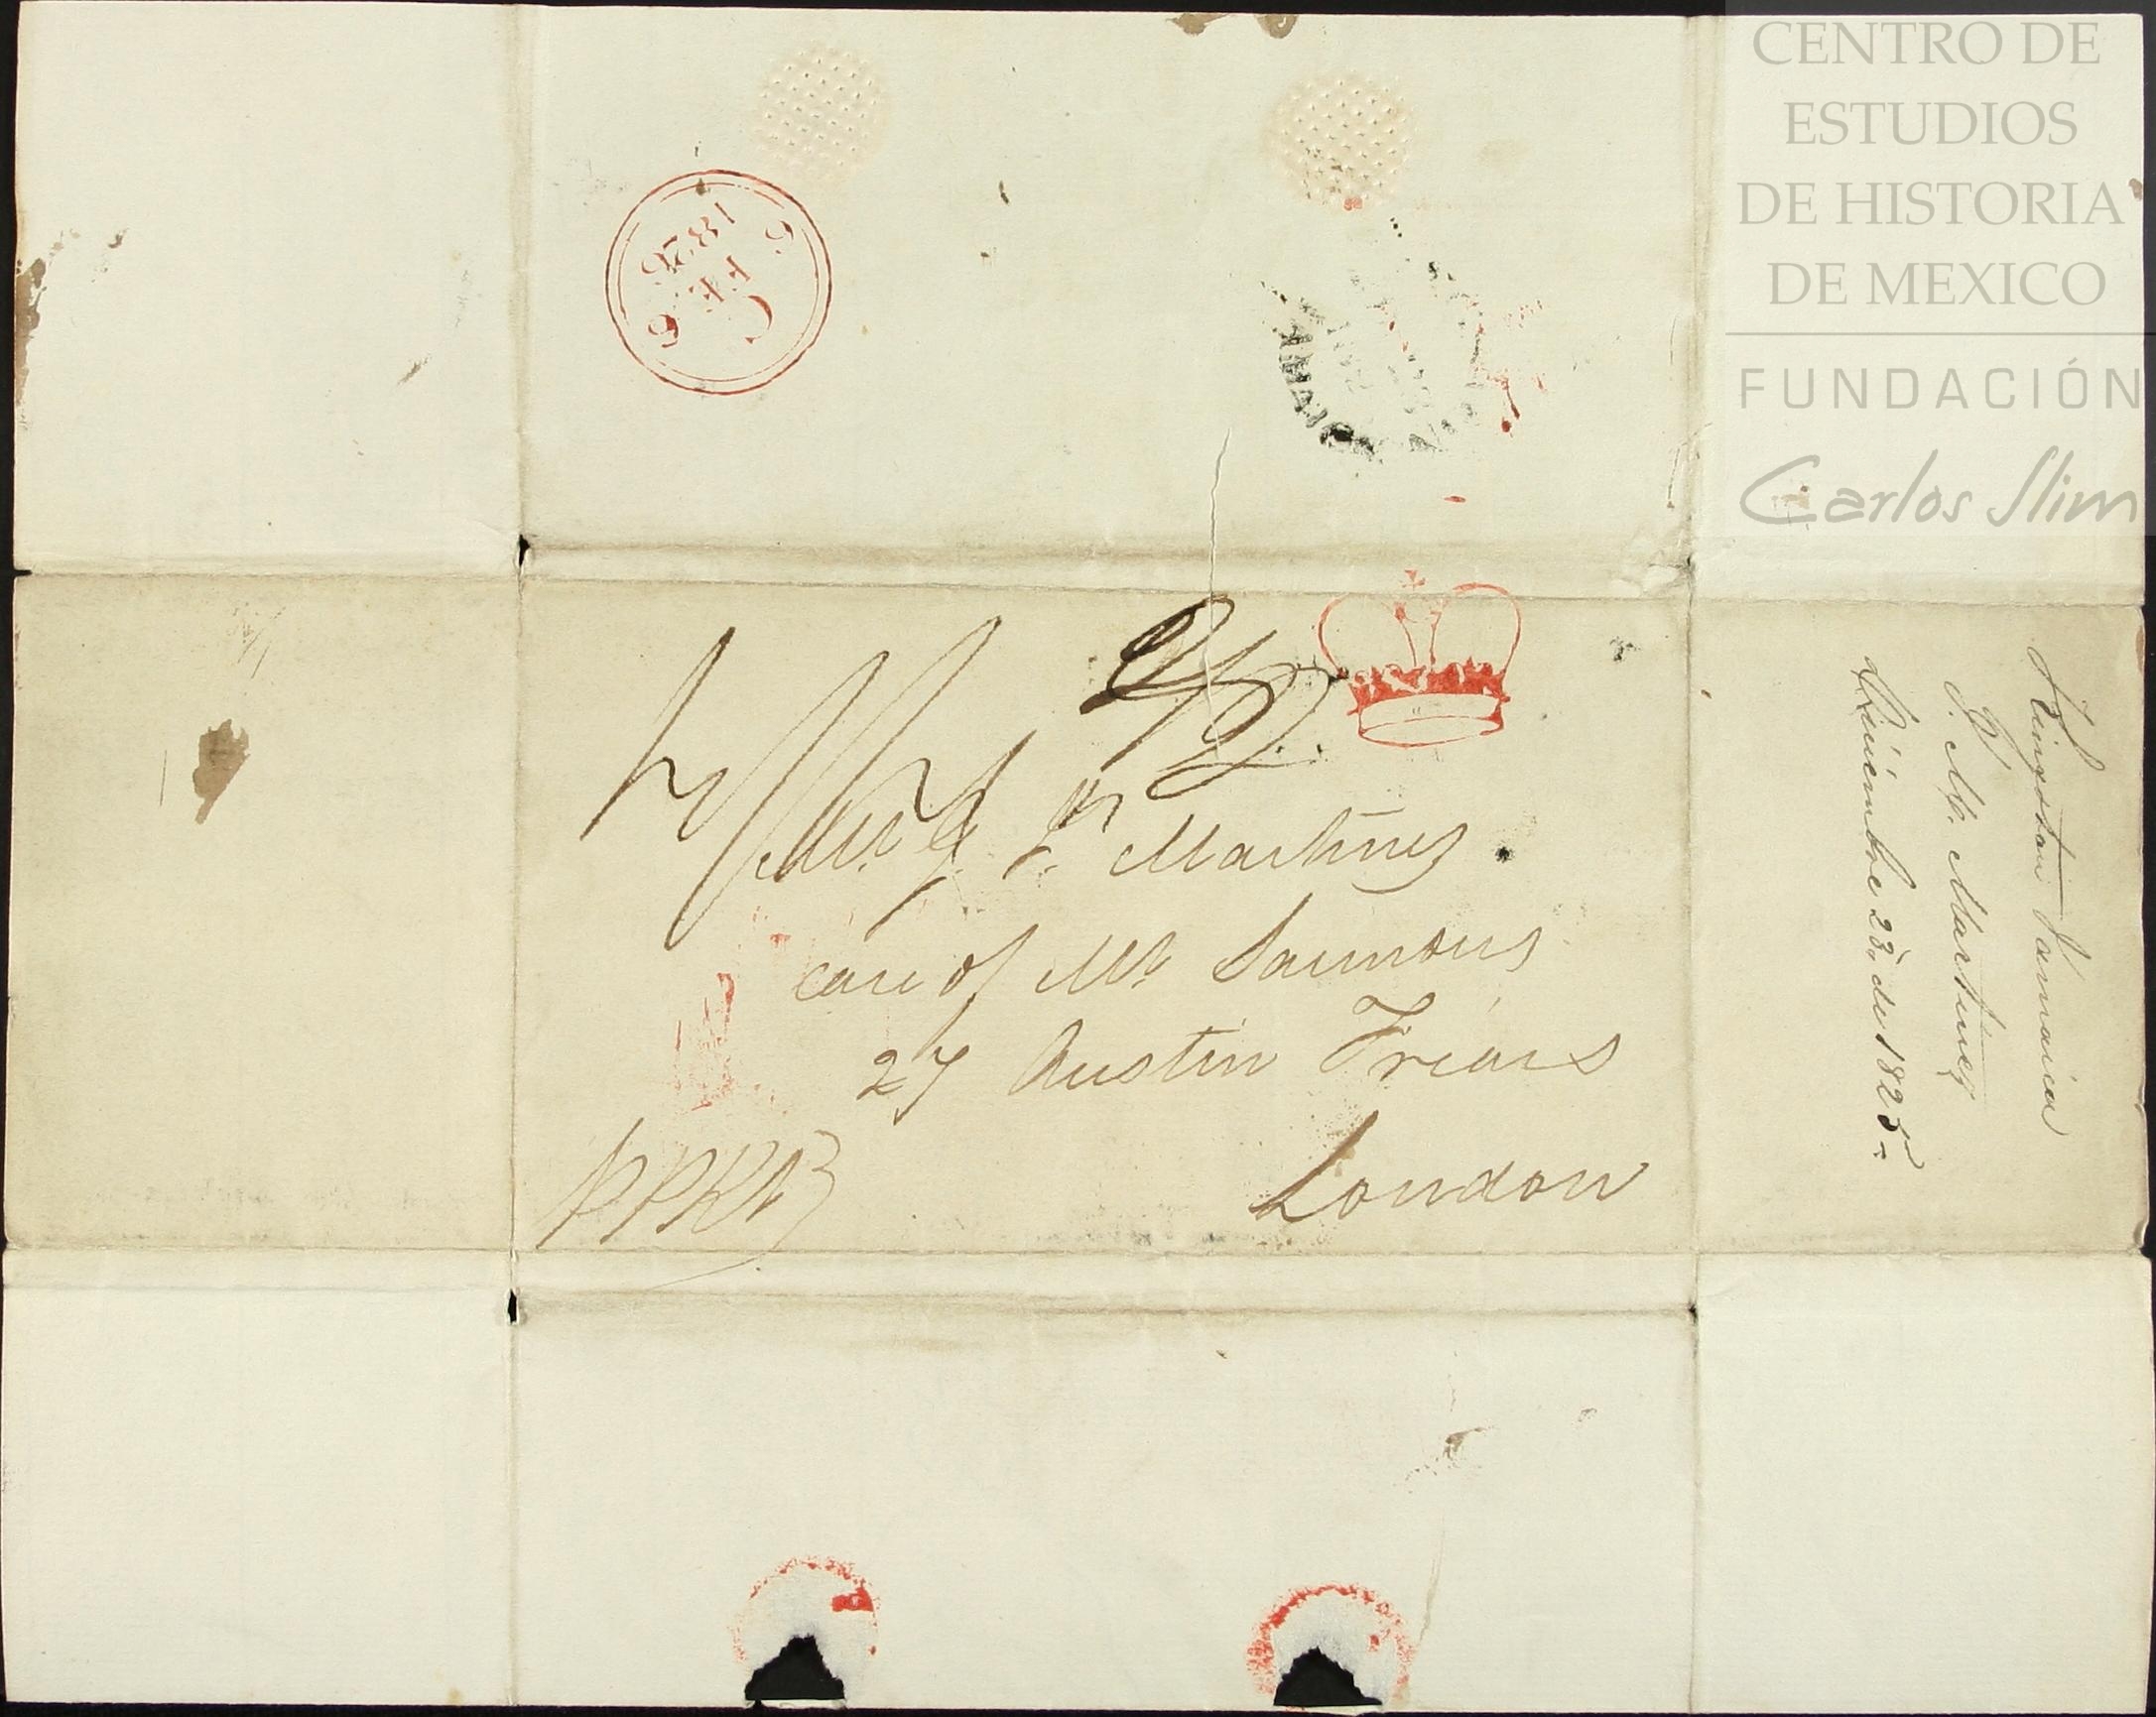 CENTRO DE
ESTUDIOS
DE HISTORIA
DE MEXICO
FUNDACIÓN
Carlos Slim
Mr. J. Martinez
care of Mr Saunders
27 Austin Friars
London
Kingston Jamaica
P. M. Martinez
Diciembre 23. de 1825.